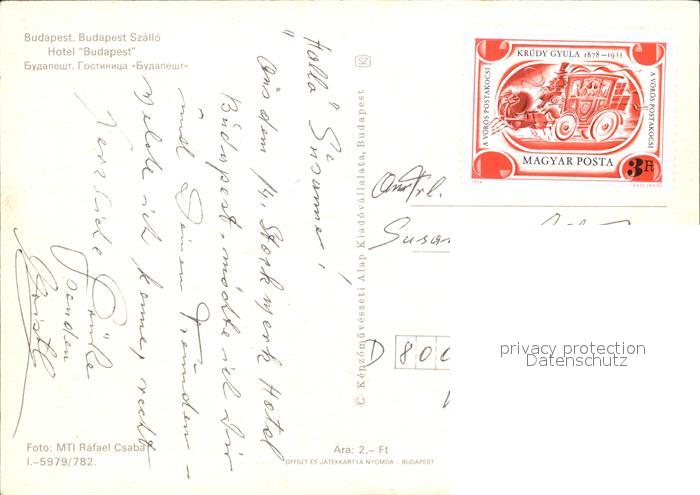 Budapest. Budapest Szálló
Hotel "Budapest"
Будапешт. Гостиница «Будапешт»
"Hallo Susanne"!
Aus dem 14. Stockwerk Hotel
Budapest, möchte ich Dir
und Deinen Freunden –
welche ich kenne, recht
herzliche Grüße
senden
Foto: MTI Ráfael Csaba
I.–5979/782.
SZ
C Képzőművészeti Alap Kiadóvállalata, Budapest
Ára: 2,– Ft
OFFSET ÉS JÁTÉKKÁRTYA NYOMDA – BUDAPEST
KRÚDY GYULA 1878–1933
A VÖRÖS POSTAKOCSI
A VÖRÖS POSTAKOCSI
MAGYAR POSTA
3 Ft
Frl.
Susan
D 800
privacy protection
Datenschutz